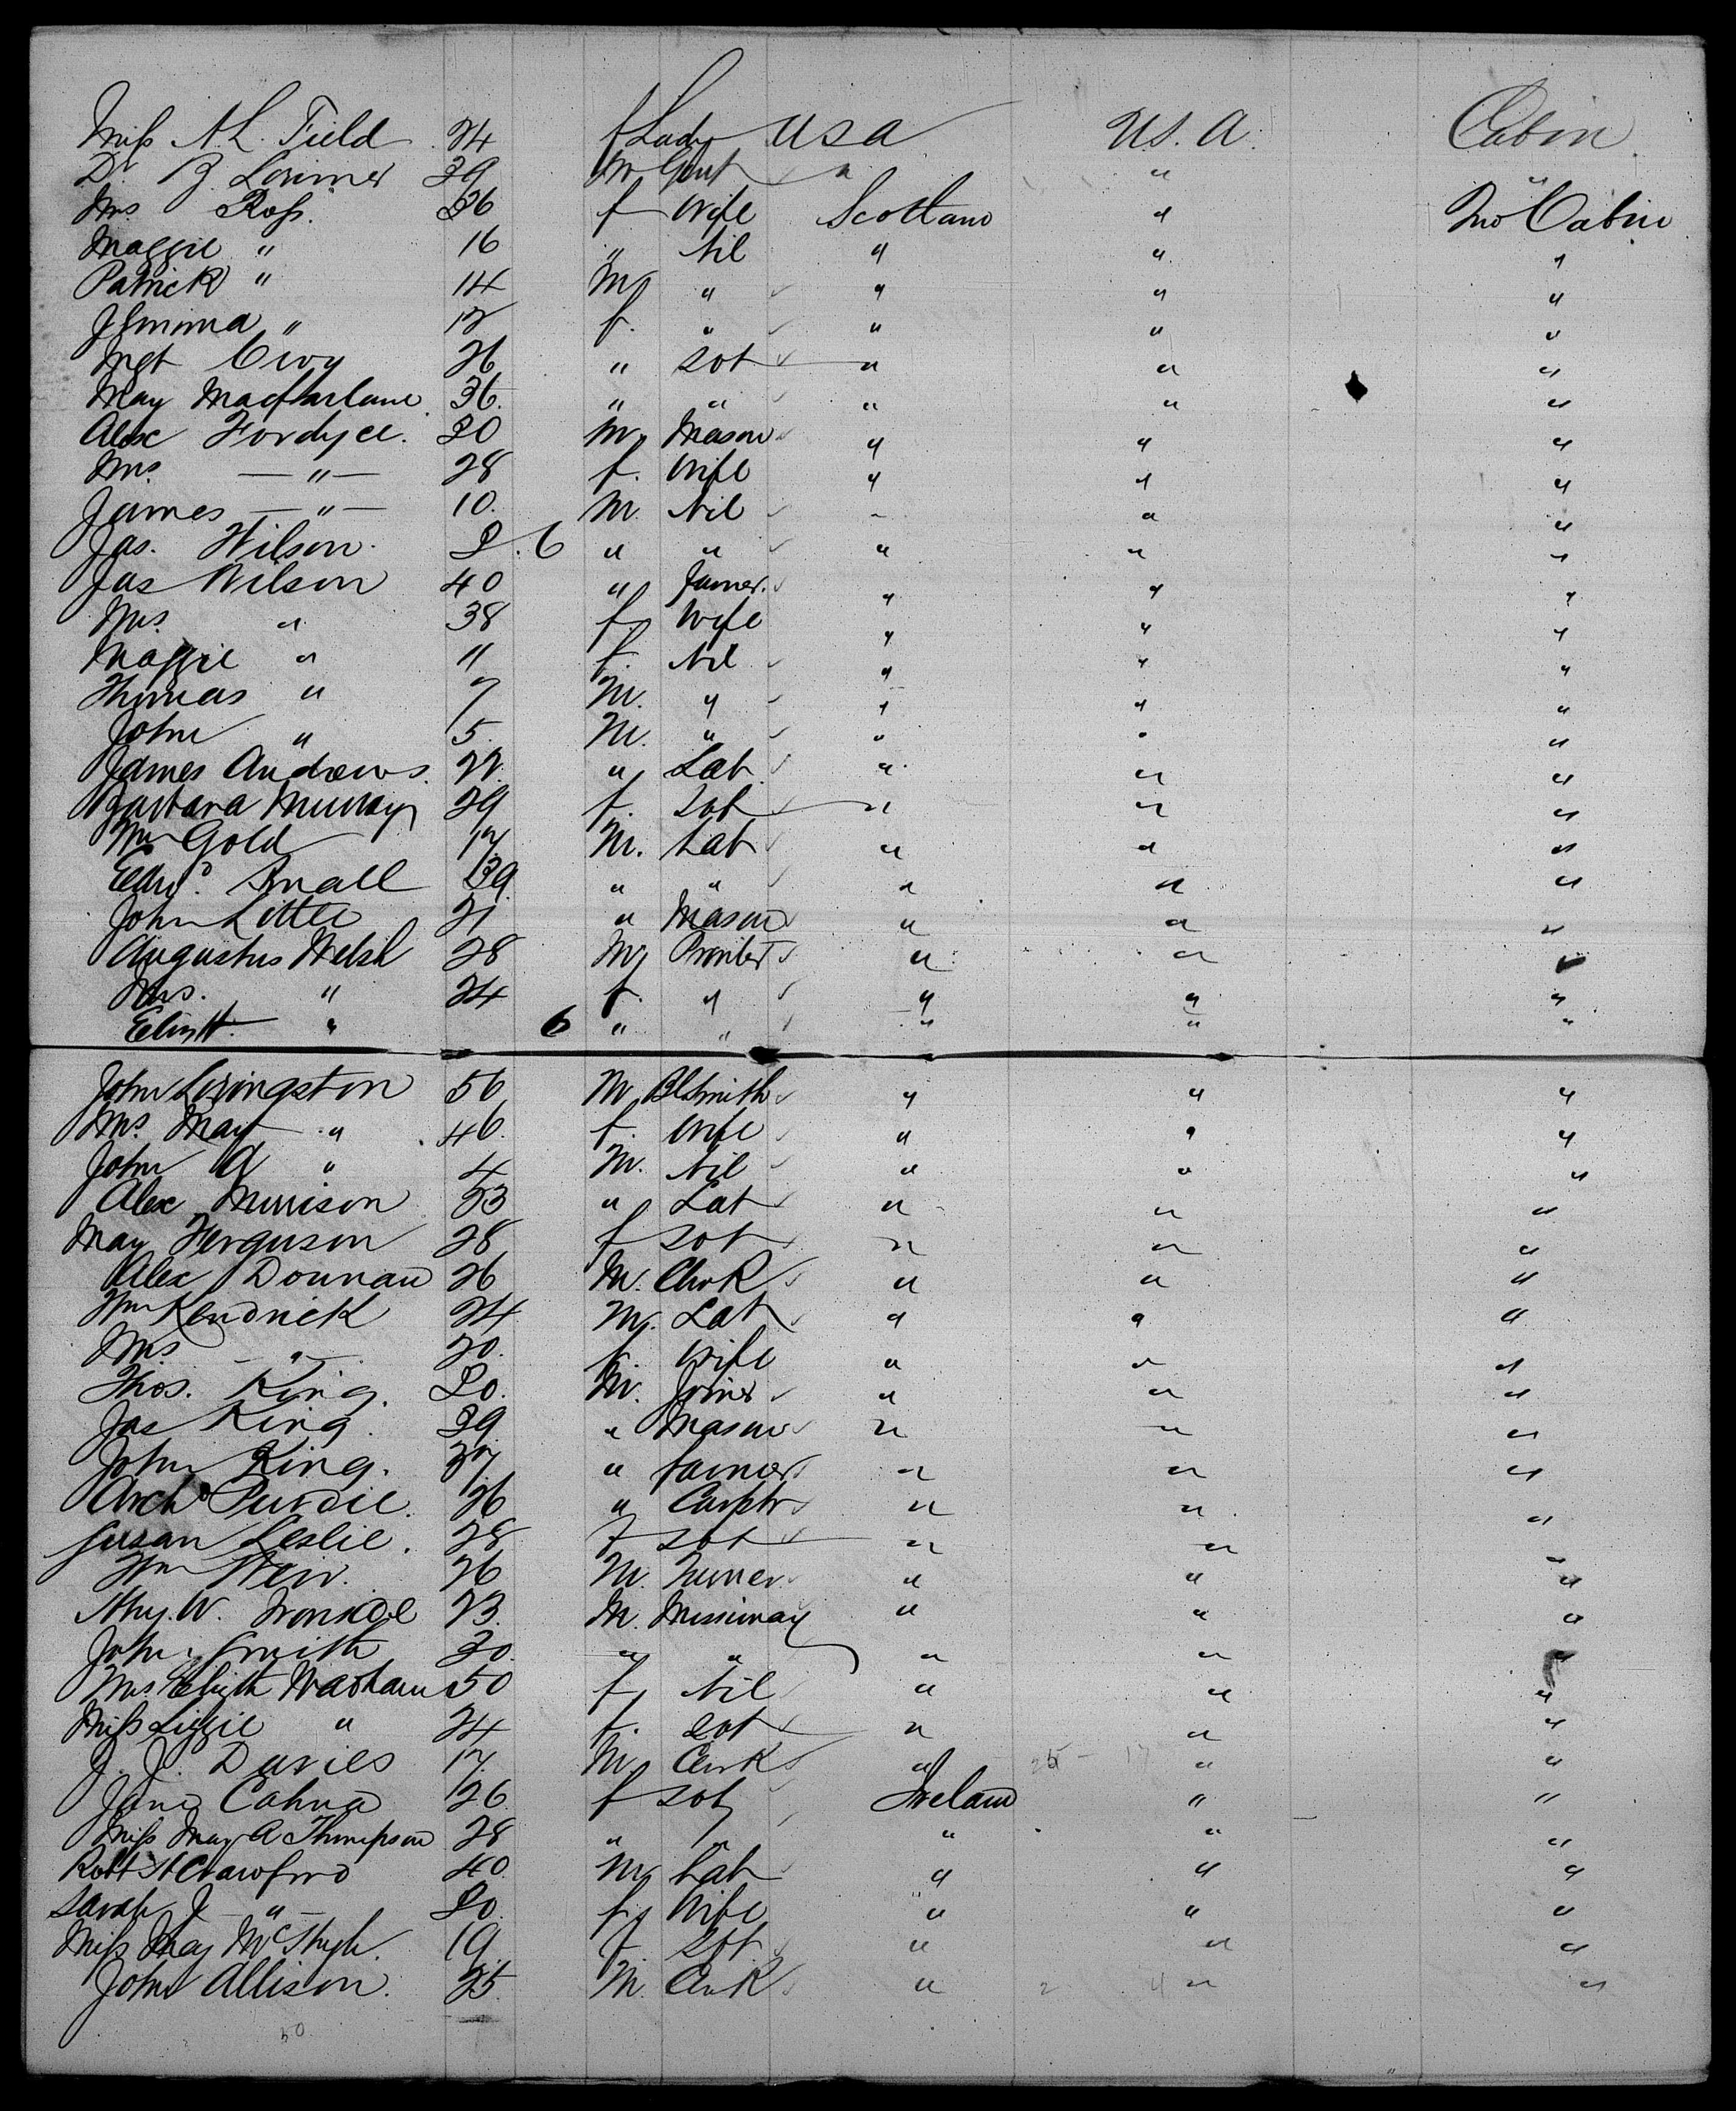 Miss A. L. Field 24 f Lady USA U.S.A. Cabin
Dr. Z. Lorimer 39 M Gent " " "
Mrs Ross. 36 f Wife Scotland " 2nd Cabin
Maggie " 16 " Nil " " "
Patrick " 14 M " " " "
Jemima " 12 f. " " " "
Mgt 26 " Spt " " "
May Macfarlane 36. " " " " "
Alex Fordyce. 30 M Mason " " "
Mrs. — " — 28 f. Wife " " "
James — " — 10. M Nil " " "
Jas. Wilson. 2.6 " " " " "
Jas Wilson 40 " Farmer. " " "
Mrs. " 38 f Wife " " "
Maggie " 11 f. Nil " " "
Thomas " 7 M. " " " "
John " 5. M. " " " "
James Andrews 22. " Lab " " "
Barbara Murray 29 f. Spt " " "
Wm Gold 17 M. Lab " " "
Edwd. Small 39 " " " " "
John Little 21 " Mason " " "
Augustus Welsh 28 M Printer " " "
Mrs. " 24 f. " " " "
" 6 " " " " "
John Livingston 56 M Bl Smith " " "
Mrs. May " 46. f. Wife " " "
John A " 4 M. Nil " " "
Alex Murrison 53 " Lab " " "
May Ferguson 28 f Spt " " "
Alex Dounan 26 M. Clerk " " "
Wm Kendrick 24 M. Lab " " "
Mrs — " — 20. f. Wife " " "
Thos. King. 20. M. Joiner " " "
Jas King. 39 " Mason " " "
John King. 37 " Farmer " " "
Archd Purdie. 26 " Carptr " " "
Susan Leslie. 28 f Spt " " "
Wm Weir. 26 M. " " "
W. 23. M. Missionary " " "
John Smith 30. " " " " "
Mrs Elizth 50 f Nil " " "
Miss Lizzie " 24 f. Spt " " "
J. J. Davies 17. M. Clerk " 25 - 17 " "
Jane 26 f Spt Ireland " "
Miss May A Thompson 28 " " " " "
Robt H Crawford 40 M Lab " " "
Sarah J — " — 20. f Wife " " "
Miss May McHugh. 19 f. Spt " " "
John Allison. 25. M. Clerk " 2 4 " "
50